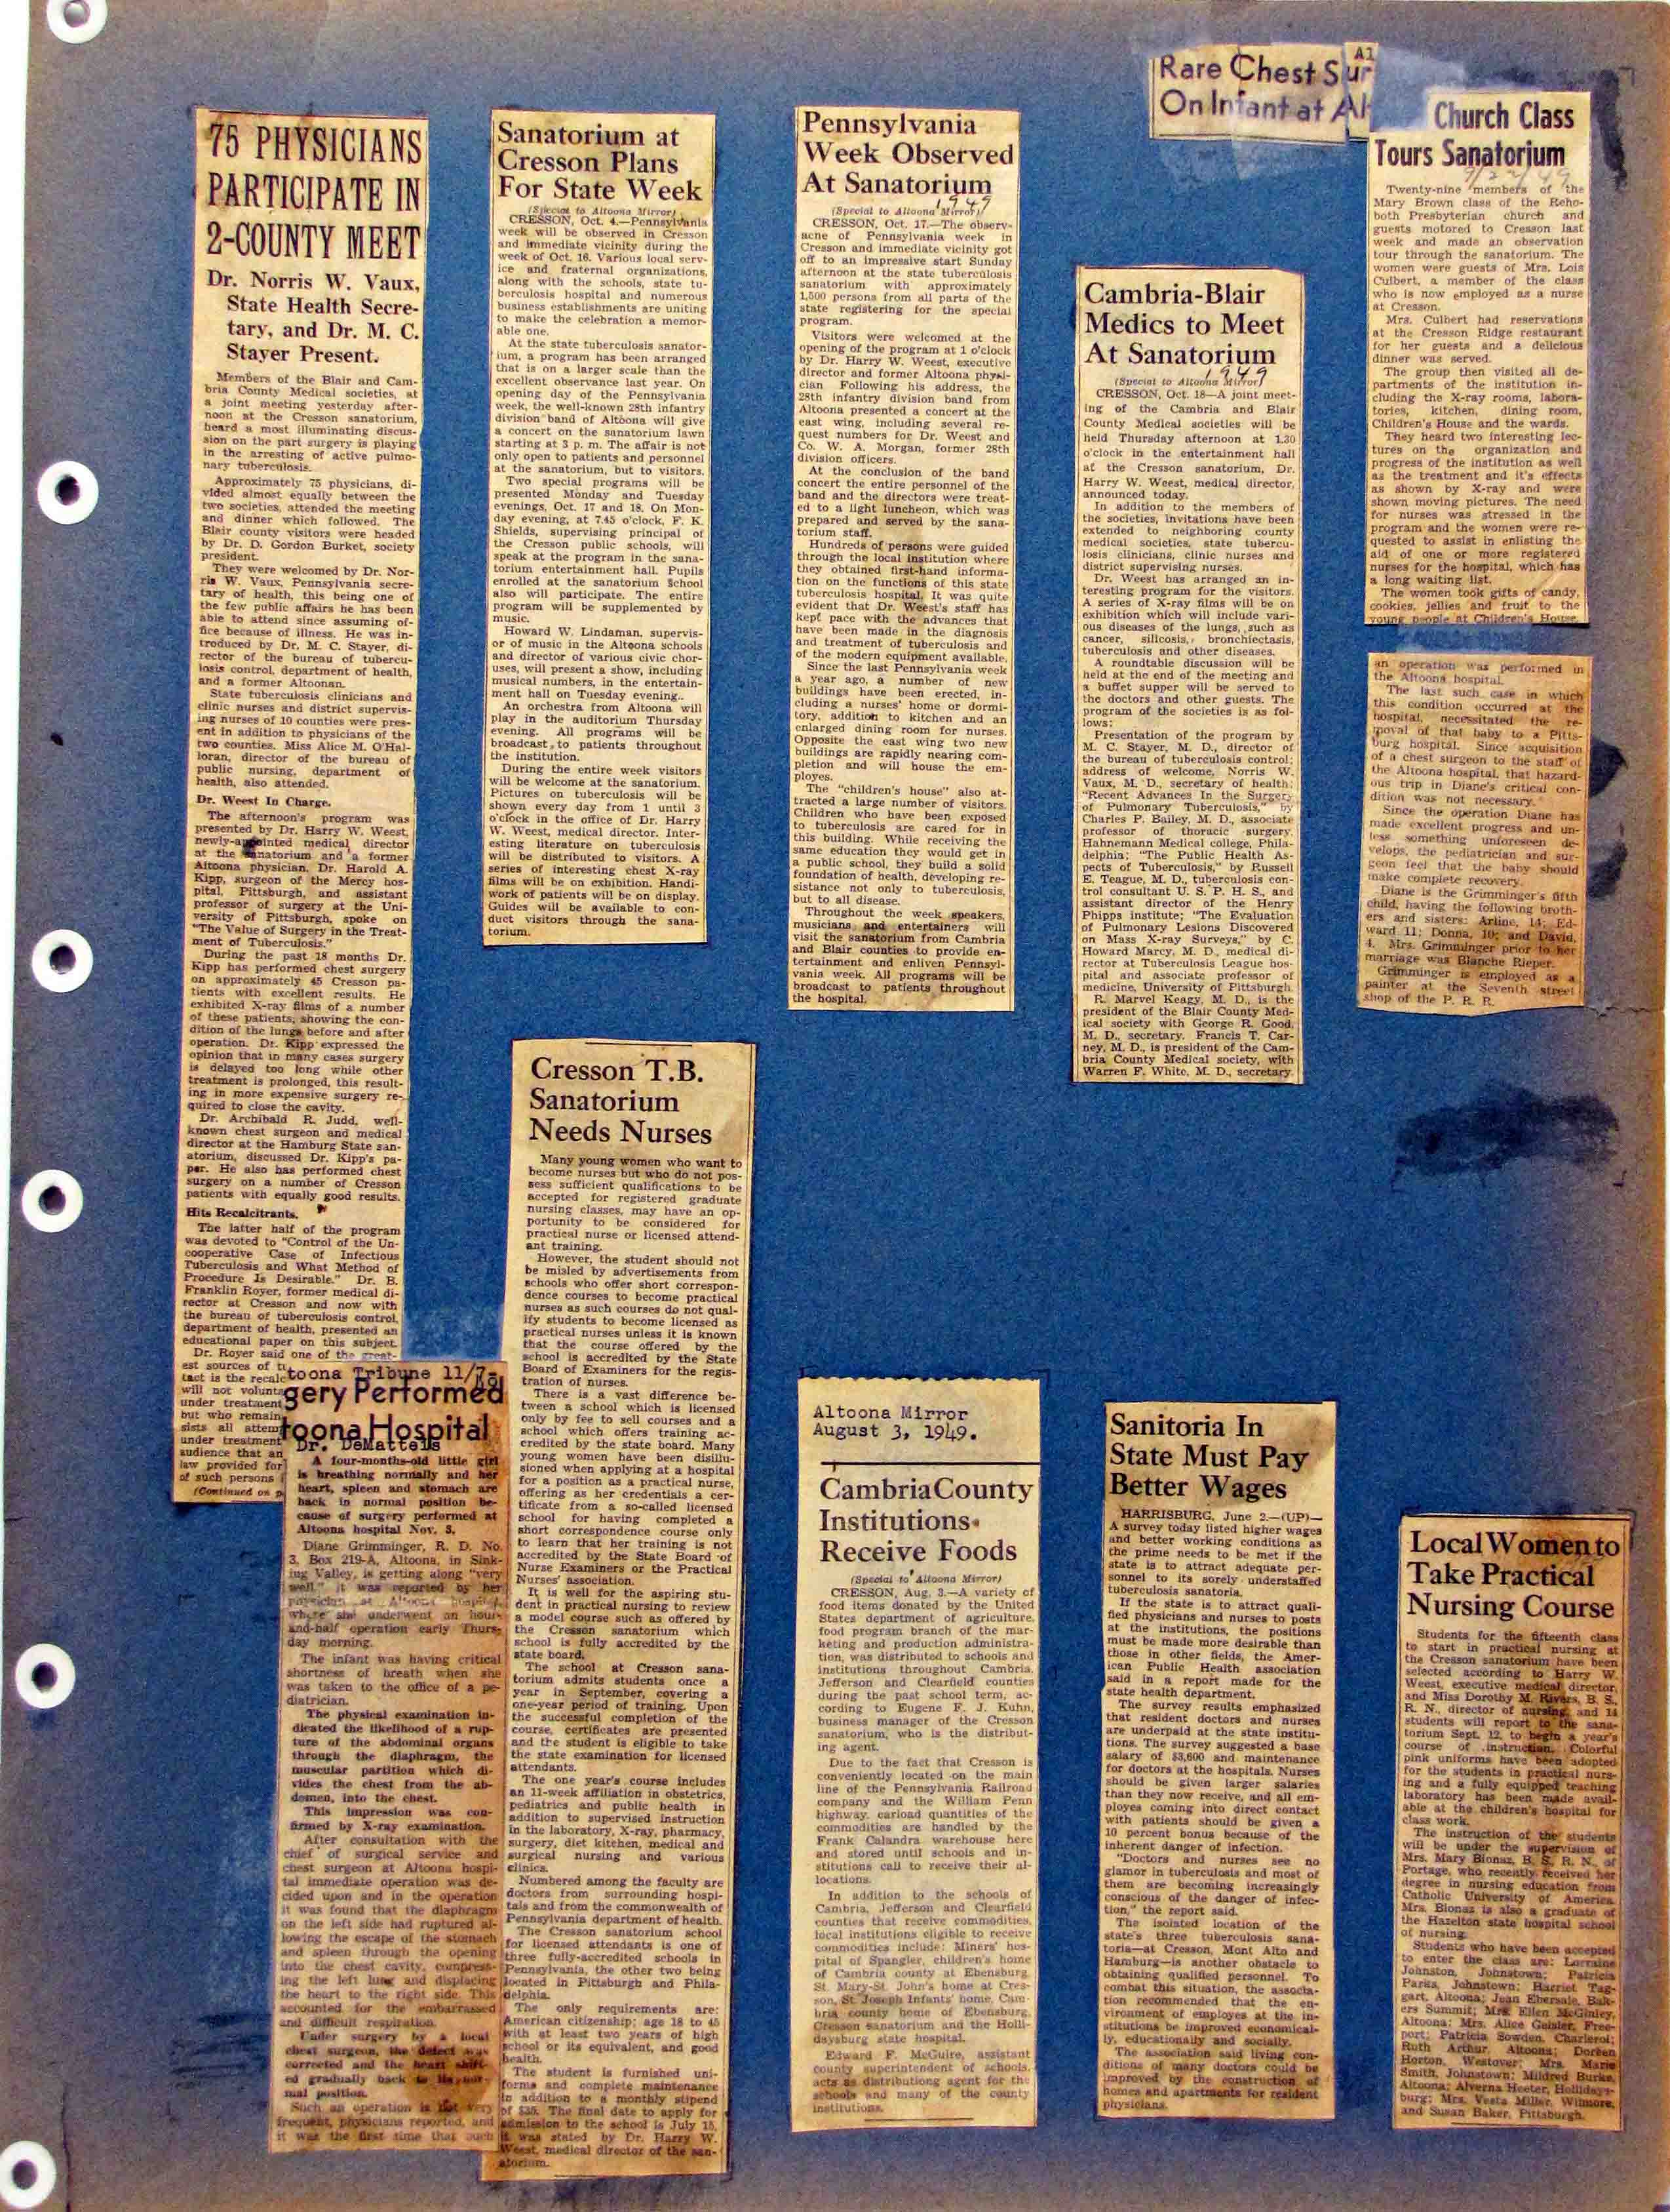 75 PHYSICIANS
PARTICIPATE IN
2-COUNTY MEET
Dr. Norris W. Vaux,
State Health Secre-
tary, and Dr. M. C.
Stayer Present.
Members of the Blair and Cam-
bria County Medical societies, at
a joint meeting yesterday after-
noon at the Cresson sanatorium,
heard a most illuminating discus-
sion on the part surgery is playing
in the arresting of active pulmo-
nary tuberculosis.
Approximately 75 physicians, di-
vided almost equally between the
two societies, attended the meeting
and dinner which followed. The
Blair county visitors were headed
by Dr. D. Gordon Burket, society
president.
They were welcomed by Dr. Nor-
ris W. Vaux, Pennsylvania secre-
tary of health, this being one of
the few public affairs he has been
able to attend since assuming of-
fice because of illness. He was in-
troduced by Dr. M. C. Stayer, di-
rector of the bureau of tubercu-
losis control, department of health,
and a former Altoonan.
State tuberculosis clinicians and
clinic nurses and district supervis-
ing nurses of 10 counties were pres-
ent in addition to physicians of the
two counties. Miss Alice M. O'Hal-
loran, director of the bureau of
public nursing, department of
health, also attended.
Dr. Weest In Charge.
The afternoon's program was
presented by Dr. Harry W. Weest,
newly-appointed medical director
at the sanatorium and a former
Altoona physician. Dr. Harold A.
Kipp, surgeon of the Mercy hos-
pital, Pittsburgh, and assistant
professor of surgery at the Uni-
versity of Pittsburgh, spoke on
"The Value of Surgery in the Treat-
ment of Tuberculosis."
During the past 18 months Dr.
Kipp has performed chest surgery
on approximately 45 Cresson pa-
tients with excellent results. He
exhibited X-ray films of a number
of these patients, showing the con-
dition of the lungs before and after
operation. Dr. Kipp expressed the
opinion that in many cases surgery
is delayed too long while other
treatment is prolonged, this result-
ing in more expensive surgery re-
quired to close the cavity.
Dr. Archibald R. Judd, well-
known chest surgeon and medical
director at the Hamburg State san-
atorium, discussed Dr. Kipp's pa-
per. He also has performed chest
surgery on a number of Cresson
patients with equally good results.
Hits Recalcitrants.
The latter half of the program
was devoted to "Control of the Un-
cooperative Case of Infectious
Tuberculosis and What Method of
Procedure Is Desirable." Dr. B.
Franklin Royer, former medical di-
rector at Cresson and now with
the bureau of tuberculosis control,
department of health, presented an
educational paper on this subject.
Dr. Royer said one of the great-
est sources of
tact is the
will not
under treatment
but who
sists all
under treatment
audience that an
law provided for
of such persons
(Continued on
Sanatorium at
Cresson Plans
For State Week
(Special to Altoona Mirror)
CRESSON, Oct. 4.—Pennsylvania
week will be observed in Cresson
and immediate vicinity during the
week of Oct. 16. Various local serv-
ice and fraternal organizations,
along with the schools, state tu-
berculosis hospital and numerous
business establishments are uniting
to make the celebration a memor-
able one.
At the state tuberculosis sanator-
ium, a program has been arranged
that is on a larger scale than the
excellent observance last year. On
opening day of the Pennsylvania
week, the well-known 28th infantry
division band of Altoona will give
a concert on the sanatorium lawn
starting at 3 p. m. The affair is not
only open to patients and personnel
at the sanatorium, but to visitors.
Two special programs will be
presented Monday and Tuesday
evenings, Oct. 17 and 18. On Mon-
day evening, at 7.45 o'clock, F. K.
Shields, supervising principal of
the Cresson public schools, will
speak at the program in the sana-
torium entertainment hall. Pupils
enrolled at the sanatorium School
also will participate. The entire
program will be supplemented by
music.
Howard W. Lindaman, supervis-
or of music in the Altoona schools
and director of various civic chor-
uses, will present a show, including
musical numbers, in the entertain-
ment hall on Tuesday evening..
An orchestra from Altoona will
play in the auditorium Thursday
evening. All programs will be
broadcast to patients throughout
the institution.
During the entire week visitors
will be welcome at the sanatorium.
Pictures on tuberculosis will be
shown every day from 1 until 3
o'clock in the office of Dr. Harry
W. Weest, medical director. Inter-
esting literature on tuberculosis
will be distributed to visitors. A
series of interesting chest X-ray
films will be on exhibition. Handi-
work of patients will be on display.
Guides will be available to con-
duct visitors through the sana-
torium.
Pennsylvania
Week Observed
At Sanatorium
1949
(Special to Altoona Mirror)
CRESSON, Oct. 17.—The observ-
acne of Pennsylvania week in
Cresson and immediate vicinity got
off to an impressive start Sunday
afternoon at the state tuberculosis
sanatorium with approximately
1,500 persons from all parts of the
state registering for the special
program.
Visitors were welcomed at the
opening of the program at 1 o'clock
by Dr. Harry W. Weest, executive
director and former Altoona physi-
cian Following his address, the
28th infantry division band from
Altoona presented a concert at the
east wing, including several re-
quest numbers for Dr. Weest and
Co. W. A. Morgan, former 28th
division officers.
At the conclusion of the band
concert the entire personnel of the
band and the directors were treat-
ed to a light luncheon, which was
prepared and served by the sana-
torium staff.
Hundreds of persons were guided
through the local institution where
they obtained first-hand informa-
tion on the functions of this state
tuberculosis hospital. It was quite
evident that Dr. Weest's staff has
kept pace with the advances that
have been made in the diagnosis
and treatment of tuberculosis and
of the modern equipment available.
Since the last Pennsylvania week
a year ago, a number of new
buildings have been erected, in-
cluding a nurses' home or dormi-
tory, addition to kitchen and an
enlarged dining room for nurses.
Opposite the east wing two new
buildings are rapidly nearing com-
pletion and will house the em-
ployes.
The "children's house" also at-
tracted a large number of visitors.
Children who have been exposed
to tuberculosis are cared for in
this building. While receiving the
same education they would get in
a public school, they build a solid
foundation of health, developing re-
sistance not only to tuberculosis,
but to all disease.
Throughout the week speakers,
musicians and entertainers will
visit the sanatorium from Cambria
and Blair counties to provide en-
tertainment and enliven Pennsyl-
vania week. All programs will be
broadcast to patients throughout
the hospital.
Cambria-Blair
Medics to Meet
At Sanatorium
1949
(Special to Altoona Mirror)
CRESSON, Oct. 18—A joint meet-
ing of the Cambria and Blair
County Medical societies will be
held Thursday afternoon at 1.30
o'clock in the entertainment hall
at the Cresson sanatorium, Dr.
Harry W. Weest, medical director,
announced today.
In addition to the members of
the societies, invitations have been
extended to neighboring county
medical societies, state tubercu-
losis clinicians, clinic nurses and
district supervising nurses.
Dr. Weest has arranged an in-
teresting program for the visitors.
A series of X-ray films will be on
exhibition which will include vari-
ous diseases of the lungs, such as
cancer, silicosis, bronchiectasis,
tuberculosis and other diseases.
A roundtable discussion will be
held at the end of the meeting and
a buffet supper will be served to
the doctors and other guests. The
program of the societies is as fol-
lows:
Presentation of the program by
M. C. Stayer, M. D., director of
the bureau of tuberculosis control;
address of welcome, Norris W.
Vaux, M. D., secretary of health;
"Recent Advances In the Surgery
of Pulmonary Tuberculosis," by
Charles P. Bailey, M. D., associate
professor of thoracic surgery,
Hahnemann Medical college, Phila-
delphia; "The Public Health As-
pects of Tuberculosis," by Russell
E. Teague, M. D., tuberculosis con-
trol consultant U. S. P. H. S., and
assistant director of the Henry
Phipps institute; "The Evaluation
of Pulmonary Lesions Discovered
on Mass X-ray Surveys," by C.
Howard Marcy, M. D., medical di-
rector at Tuberculosis League hos-
pital and associate professor of
medicine, University of Pittsburgh.
R. Marvel Keagy, M. D., is the
president of the Blair County Med-
ical society with George R. Good,
M. D., secretary. Francis T. Car-
ney, M. D., is president of the Cam-
bria County Medical society, with
Warren F. White, M. D., secretary.
Al
Rare Chest Sur
On Infant at Al
Church Class
Tours Sanatorium
9/22/49
Twenty-nine members of the
Mary Brown class of the Reho-
both Presbyterian church and
guests motored to Cresson last
week and made an observation
tour through the sanatorium. The
women were guests of Mrs. Lois
Culbert, a member of the class
who is now employed as a nurse
at Cresson.
Mrs. Culbert had reservations
at the Cresson Ridge restaurant
for her guests and a delicious
dinner was served.
The group then visited all de-
partments of the institution in-
cluding the X-ray rooms, labora-
tories, kitchen, dining room,
Children's House and the wards.
They heard two interesting lec-
tures on the organization and
progress of the institution as well
as the treatment and it's effects
as shown by X-ray and were
shown moving pictures. The need
for nurses was stressed in the
program and the women were re-
quested to assist in enlisting the
aid of one or more registered
nurses for the hospital, which has
a long waiting list.
The women took gifts of candy,
cookies, jellies and fruit to the
young people at Children's House.
an operation was performed in
the Altoona hospital.
The last such case in which
this condition occurred at the
hospital, necessitated the re-
moval of that baby to a Pitts-
burg hospital. Since acquisition
of a chest surgeon to the staff of
the Altoona hospital, that hazard-
ous trip in Diane's critical con-
dition was not necessary.
Since the operation Diane has
made excellent progress and un-
less something unforeseen de-
velops, the pediatrician and sur-
geon feel that the baby should
make complete recovery.
Diane is the Grimminger's fifth
child, having the following broth-
ers and sisters: Arline, 14; Ed-
ward 11; Donna, 10; and David,
4. Mrs. Grimminger prior to her
marriage was Blanche Rieper.
Grimminger is employed as a
painter at the Seventh street
shop of the P. R. R.
toona Tribune 11/7-
gery Performed
toona Hospital
Dr. DeMatteis
A four-months-old little girl
is breathing normally and her
heart, spleen and stomach are
back in normal position be-
cause of surgery performed at
Altoona hospital Nov. 3.
Diane Grimminger, R. D. No.
3, Box 219-A, Altoona, in Sink-
ing Valley, is getting along "very
well" it was reported by her
physician at Altoona hospital,
where she underwent an hour-
and-half operation early Thurs-
day morning.
The infant was having critical
shortness of breath when she
was taken to the office of a pe-
diatrician.
The physical examination in-
dicated the likelihood of a rup-
ture of the abdominal organs
through the diaphragm, the
muscular partition which di-
vides the chest from the ab-
domen, into the chest.
This impression was con-
firmed by X-ray examination.
After consultation with the
chief of surgical service and
chest surgeon at Altoona hospi-
tal immediate operation was de-
cided upon and in the operation
it was found that the diaphragm
on the left side had ruptured al-
lowing the escape of the stomach
and spleen through the opening
into the chest cavity, compress-
ing the left lung and displacing
the heart to the right side. This
accounted for the embarrassed
and difficult respiration.
Under surgery by a local
chest surgeon, the defect was
corrected and the heart shift-
ed gradually back to its nor-
mal position.
Such an operation is not very
frequent, physicians reported, and
it was the first time that such
Cresson T.B.
Sanatorium
Needs Nurses
Many young women who want to
become nurses but who do not pos-
sess sufficient qualifications to be
accepted for registered graduate
nursing classes, may have an op-
portunity to be considered for
practical nurse or licensed attend-
ant training.
However, the student should not
be misled by advertisements from
schools who offer short correspon-
dence courses to become practical
nurses as such courses do not qual-
ify students to become licensed as
practical nurses unless it is known
that the course offered by the
school is accredited by the State
Board of Examiners for the regis-
tration of nurses.
There is a vast difference be-
tween a school which is licensed
only by fee to sell courses and a
school which offers training ac-
credited by the state board. Many
young women have been disillu-
sioned when applying at a hospital
for a position as a practical nurse,
offering as her credentials a cer-
tificate from a so-called licensed
school for having completed a
short correspondence course only
to learn that her training is not
accredited by the State Board of
Nurse Examiners or the Practical
Nurses' association.
It is well for the aspiring stu-
dent in practical nursing to review
a model course such as offered by
the Cresson sanatorium which
school is fully accredited by the
state board.
The school at Cresson sana-
torium admits students once a
year in September, covering a
one-year period of training. Upon
the successful completion of the
course, certificates are presented
and the student is eligible to take
the state examination for licensed
attendants.
The one year's course includes
an 11-week affiliation in obstetrics,
pediatrics and public health in
addition to supervised instruction
in the laboratory, X-ray, pharmacy,
surgery, diet kitchen, medical and
surgical nursing and various
clinics.
Numbered among the faculty are
doctors from surrounding hospi-
tals and from the commonwealth of
Pennsylvania department of health.
The Cresson sanatorium school
for licensed attendants is one of
three fully-accredited schools in
Pennsylvania, the other two being
located in Pittsburgh and Phila-
delphia.
The only requirements are:
American citizenship; age 18 to 45
with at least two years of high
school or its equivalent, and good
health.
The student is furnished uni-
forms and complete maintenance
in addition to a monthly stipend
of $35. The final date to apply for
admission to the school is July 15,
it was stated by Dr. Harry W.
Weest, medical director of the san-
atorium.
Altoona Mirror
August 3, 1949.
Cambria County
Institutions
Receive Foods
(Special to Altoona Mirror)
CRESSON, Aug. 3.—A variety of
food items donated by the United
States department of agriculture,
food program branch of the mar-
keting and production administra-
tion, was distributed to schools and
institutions throughout Cambria,
Jefferson and Clearfield counties
during the past school term, ac-
cording to Eugene F. J. Kuhn,
business manager of the Cresson
sanatorium, who is the distribut-
ing agent.
Due to the fact that Cresson is
conveniently located on the main
line of the Pennsylvania Railroad
company and the William Penn
highway, carload quantities of the
commodities are handled by the
Frank Calandra warehouse here
and stored until schools and in-
stitutions call to receive their al-
locations.
In addition to the schools of
Cambria, Jefferson and Clearfield
counties that receive commodities,
local institutions eligible to receive
commodities include: Miners' hos-
pital of Spangler, children's home
of Cambria county at Ebensburg,
St. Mary-St. John's home at Cres-
son, St. Joseph Infants' home, Cam-
bria county home of Ebensburg,
Cresson sanatorium and the Holli-
daysburg state hospital.
Edward F. McGuire, assistant
county superintendent of schools,
acts as distributiong agent for the
schools and many of the county
institutions.
Sanitoria In
State Must Pay
Better Wages
HARRISBURG, June 2.—(UP)—
A survey today listed higher wages
and better working conditions as
the prime needs to be met if the
state is to attract adequate per-
sonnel to its sorely understaffed
tuberculosis sanatoria.
If the state is to attract quali-
fied physicians and nurses to posts
at the institutions, the positions
must be made more desirable than
those in other fields, the Amer-
ican Public Health association
said in a report made for the
state health department.
The survey results emphasized
that resident doctors and nurses
are underpaid at the state institu-
tions. The survey suggested a base
salary of $3,600 and maintenance
for doctors at the hospitals. Nurses
should be given larger salaries
than they now receive, and all em-
ployes coming into direct contact
with patients should be given a
10 percent bonus because of the
inherent danger of infection.
"Doctors and nurses see no
glamor in tuberculosis and most of
them are becoming increasingly
conscious of the danger of infec-
tion," the report said.
The isolated location of the
state's three tuberculosis sana-
toria—at Cresson, Mont Alto and
Hamburg—is another obstacle to
obtaining qualified personnel. To
combat this situation, the associa-
tion recommended that the en-
vironment of employes at the in-
stitutions be improved economical-
ly, educationally and socially.
The association said living con-
ditions of many doctors could be
improved by the construction of
homes and apartments for resident
physicians.
Local Women to
Take Practical
Nursing Course
Students for the fifteenth class
to start in practical nursing at
the Cresson sanatorium have been
selected according to Harry W.
Weest, executive medical director,
and Miss Dorothy M. Rivars, B. S.,
R. N., director of nursing, and 14
students will report to the sana-
torium Sept. 12 to begin a year's
course of instruction. Colorful
pink uniforms have been adopted
for the students in practical nurs-
ing and a fully equipped teaching
laboratory has been made avail-
able at the children's hospital for
class work.
The instruction of the students
will be under the supervision of
Mrs. Mary Bionaz, B. S., R. N., of
Portage, who recently received her
degree in nursing education from
Catholic University of America.
Mrs. Bionaz is also a graduate of
the Hazelton state hospital school
of nursing.
Students who have been accepted
to enter the class are: Lorraine
Johnston, Johnstown; Patricia
Parks, Johnstown; Harriet Tag-
gart, Altoona; Jean Ebersale, Bak-
ers Summit; Mrs. Ellen McGinley,
Altoona; Mrs. Alice Geisler, Free-
port; Patricia Sowden, Charleroi;
Ruth Arthur, Altoona; Doreen
Horton, Westover; Mrs. Marie
Smith, Johnstown; Mildred Burke,
Altoona; Alverna Heeter, Hollidays-
burg; Mrs. Vesta Miller, Wilmore,
and Susan Baker, Pittsburgh.